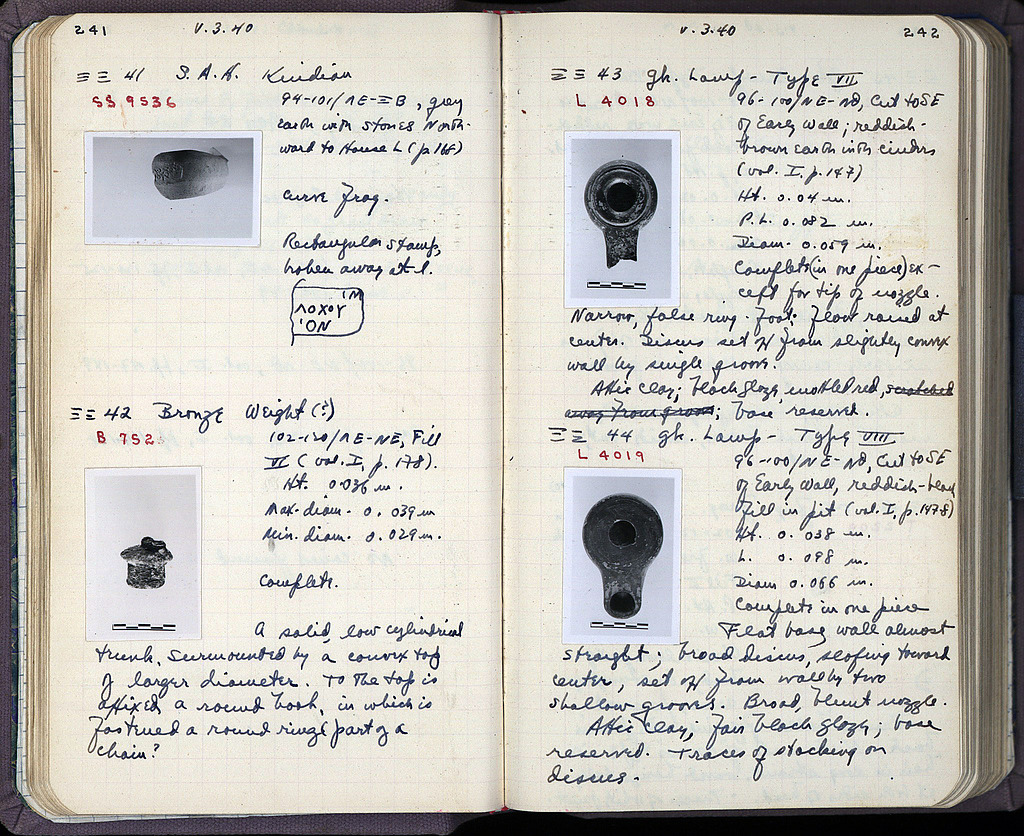 241
V.3.40
ΞΞ 41 S.A.H. Knidian
SS 9536
94-101/ΛE-ΞB, grey
earth with stones North-
ward to House L (p. 168)
Curve frag.
Rectangular stamp,
broken away at l.
ΛΟΧΟΥ
ΞΞ 42 Bronze Weight (?)
B 752
102-120/ΛE-NE, Fill
VI (vol. I, p. 178).
Ht. 0.036 m.
Max. diam. 0.039 m
Min. diam. 0.029 m.
Complete.
A solid, low cylindrical
trunk, surmounted by a convex top
of larger diameter. To the top is
affixed a round hook, in which is
fastened a round ring (part of a
chain?
V.3.40
242
ΞΞ 43 Gk. Lamp - Type VII
L 4018
96-100/NE-NΘ, Cut to SE
of Early Wall; reddish-
brown earth with cinders
(vol. I, p. 147)
Ht. 0.04 m.
P.L. 0.082 m.
Diam. 0.059 m.
Complete (in one piece) ex-
cept for tip of nozzle.
Narrow, false ring-foot; floor raised at
center. Discus set off from slightly convex
wall by single groove.
Attic clay; black glaze, mottled red, scratched
away from groove; base reserved.
ΞΞ 44 Gk. Lamp - Type VIII
L 4019
96-100/NE-NΘ, Cut to SE
of Early Wall, reddish-black
fill in pit (vol. I, p. 147-8)
Ht. 0.038 m.
L. 0.098 m.
Diam 0.066 m.
Complete in one piece
Flat base, wall almost
straight; broad discus, sloping toward
center, set off from wall by two
shallow grooves. Broad, blunt nozzle.
Attic clay; fair black glaze; base
reserved. Traces of stacking on
discus.